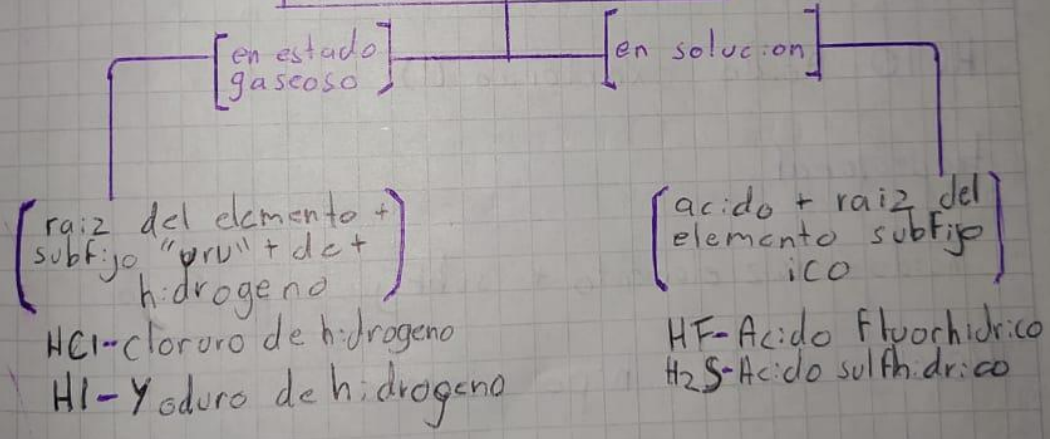 en estado
gascoso
en solucion
raiz del elemento +
subfijo "uru" + de +
hidrogeno
HCl-clororo de hidrogeno
HI-Yoduro de hidrogeno
acido + raiz del
elemento subfijo
ico
HF-Acido Fluorhidrico
H2S-Acido sulfhidrico